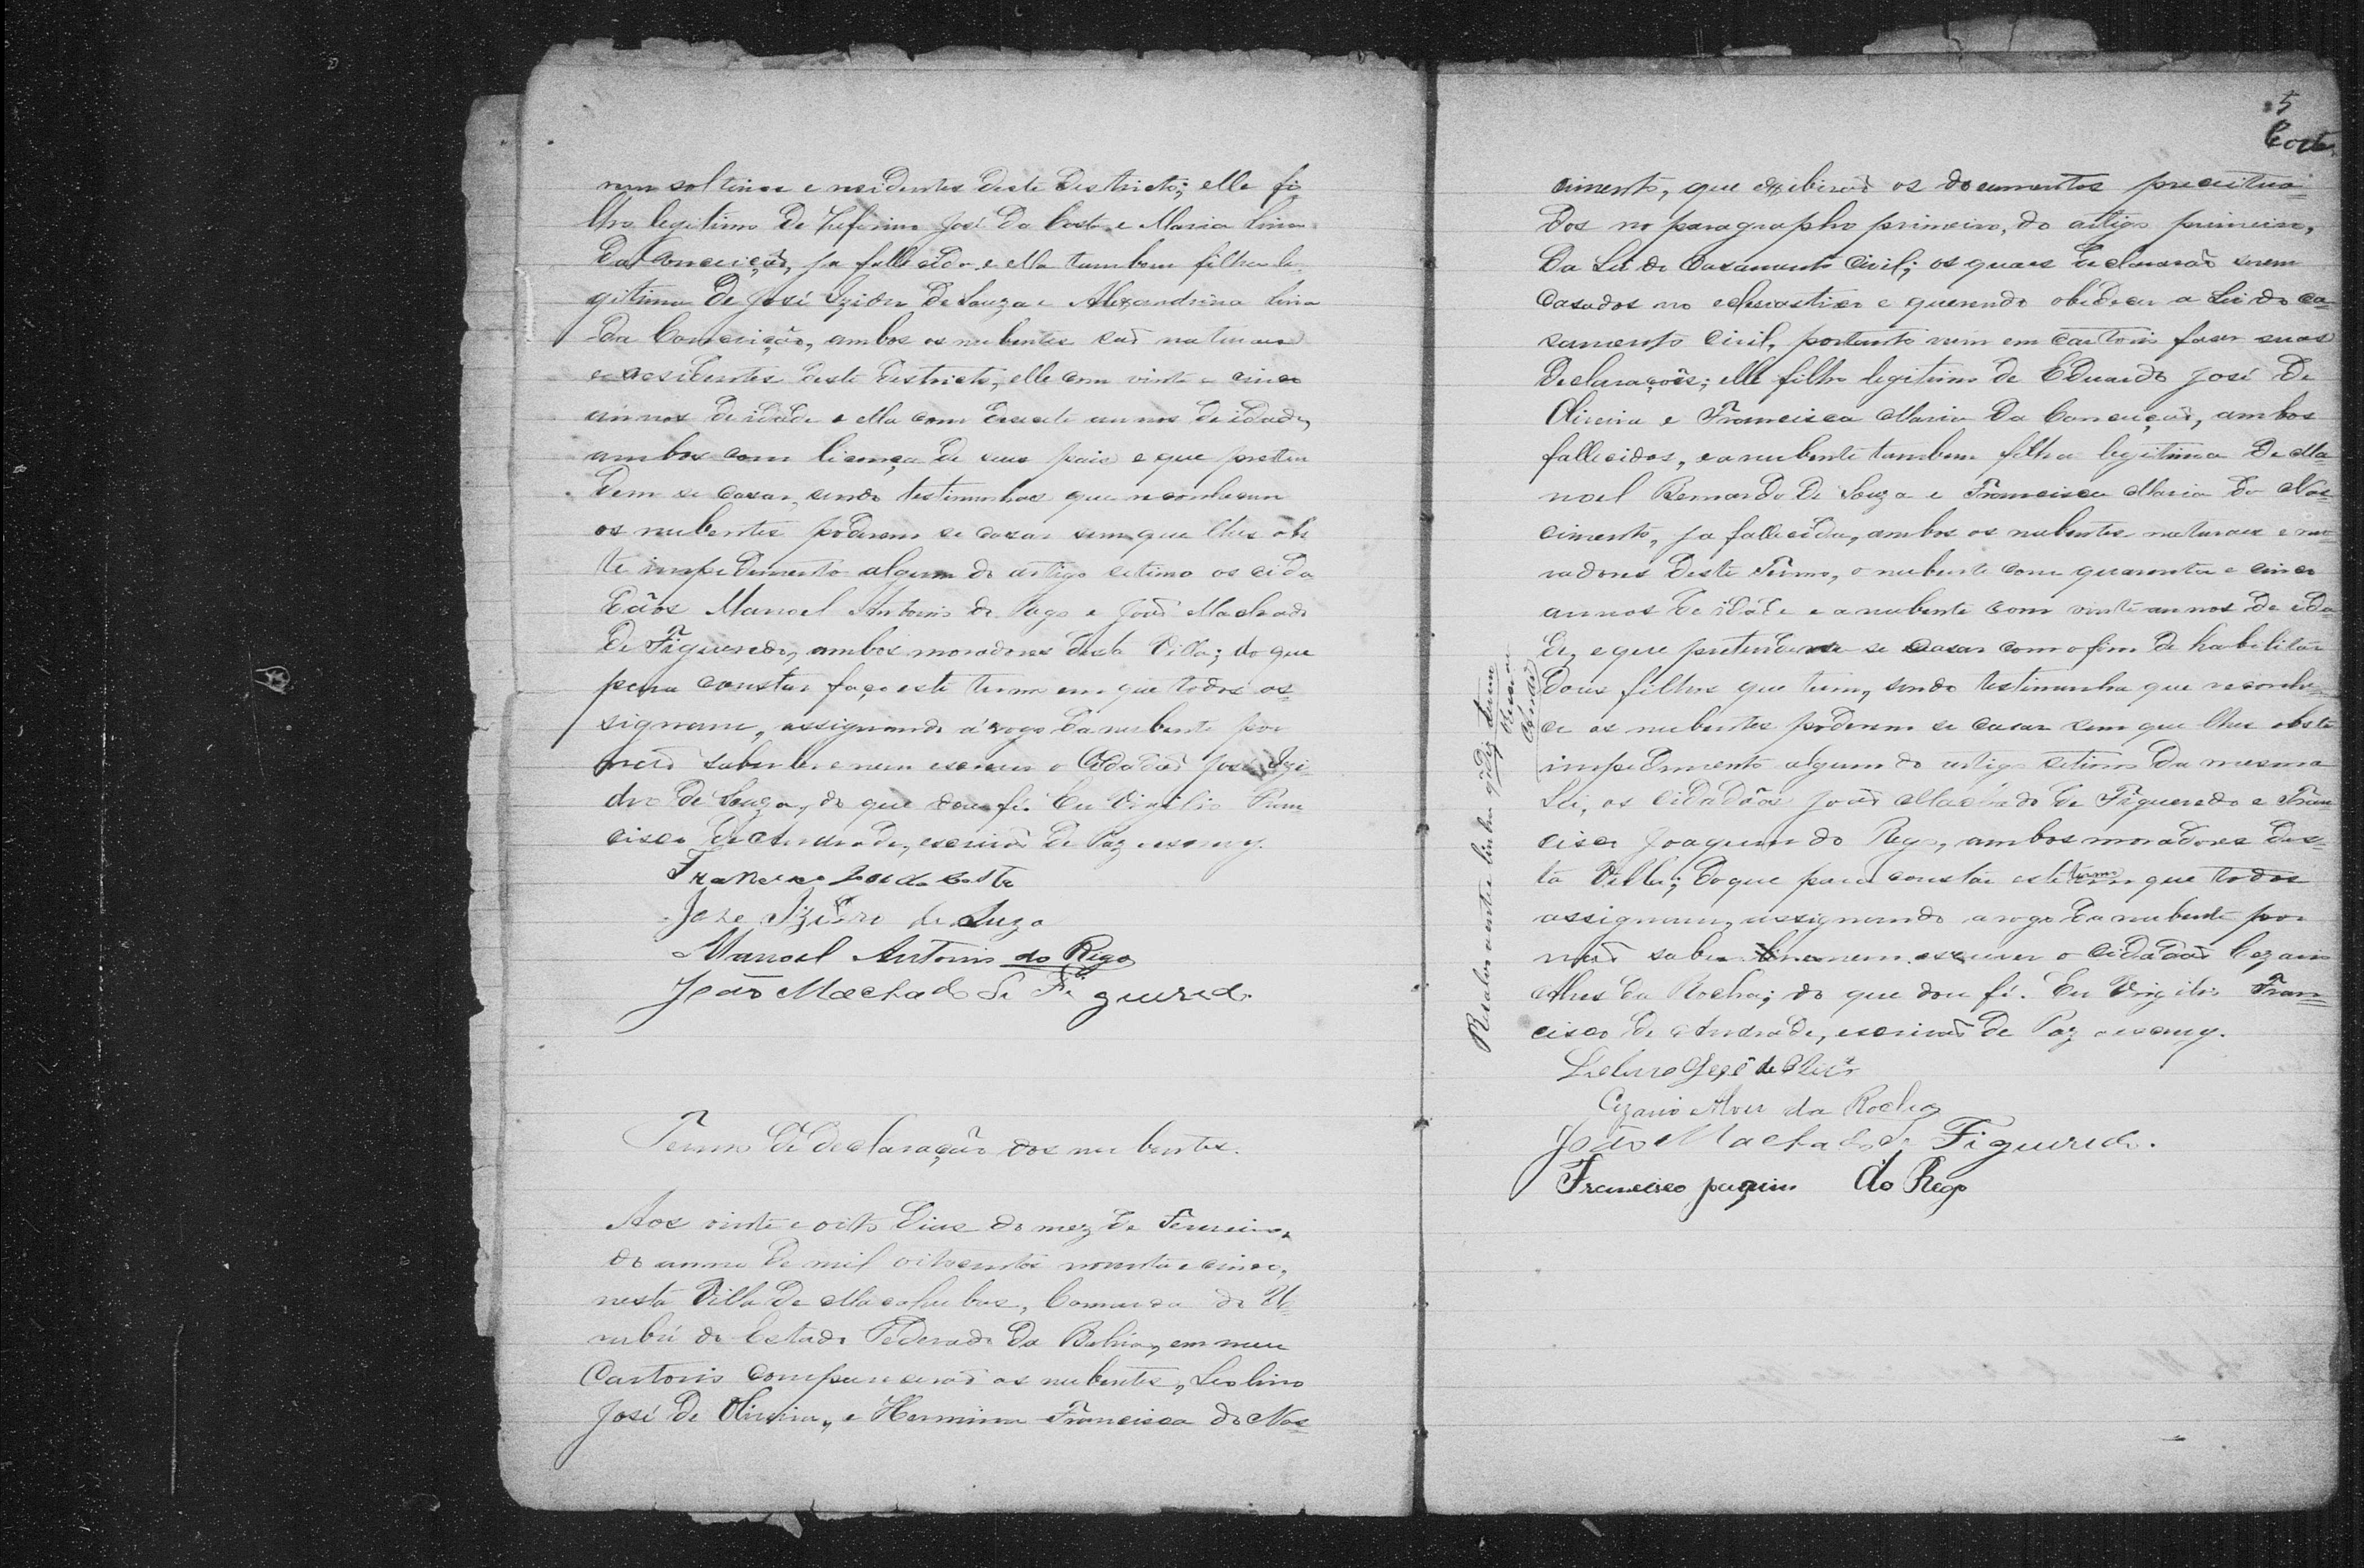 rem solteiros e residentes deste districto; elle fi
lho legitimo de Zeferino José da Costa e Maria Lina
da Conceição, ja fallecida e ella tambem filha le
gitima de José Izidro de Souza e Alexandrina Lina
da Conceição, ambos os nubentes saõ naturaes
e residentes deste districto, elle com vinte e cinco
annos de idade e ella com deseseti annos de idade,
ambos com licença de seus pais e que preten
dem se casar, sendo testimunhas que reconhecem
os nubentes poderem se casar sem que lhes obs
te impedimento algum do artigo setimo os cida
dãos Manoel Antonio do Rego e João Machado
de Figueredo, ambos moradores desta Villa; do que
para constar faço este termo em que todos as-
signam, assignando a rogo da nubente por
naõ saber ler e nem escrever o Cidadaõ José Izi-
dro de Souza, do que dou fé. Eu Virgilio Fran
cisco de Andrade, escrivaõ de Paz escrevy.
Francisco José da Costa
José Izidro de Suza
Manoel Antonio do Rego
João Machado de Figueredo.
Termo de declaração dos nubentes.
Aos vinte e oito dias do mez de Fevereiro,
do anno de mil oitocentos noventa e cinco,
nesta Villa de Macahubas, Comarca do U=
rubú do Estado Federado da Bahia, em meu
Cartorio compareceraõ os nubentes, Leolino
José de Oliveira, e Hermina Francisca do Nas=
5
Costa
cimento, que exhibiraõ os documentos preceitua=
dos no paragrapho primeiro, do artigo primeiro,
da Lei do Casamento Civil; os quaes declararaõ serem
Casados no eclesiastico e querendo obedecer a Lei do ca=
samento civil, portanto vem em cartorio faser suas
declarações; elle filho legitimo de Eduardo José de
Oliveira e Francisca Maria da Conceiçaõ, ambos
fallecidos, e a nubente tambem filha legitima de Ma
noel Bernardo de Souza e Francisca Maria do Nas=
cimento, ja fallecida, ambos os nubentes naturaes e mo=
radores deste Termo, o nubente com quarenta e cinco
annos de idade e a nubente com vinte annos de ida=
de, e que pretendem se casar com o fim de habilitar
dous filhos que tem, sendo testimunha que reconhe=
ce os nubentes poderem se casar sem que lhes obste
impedimento algum do artigo setimo da mesma
Lei, os cidadãos João Machado de Figueredo e Fran
cisco Joaquim do Rego, ambos moradores des=
ta Villa; do que para constar este termo que todos
assignam, assignando a rogo da nubente por
naõ saber ler e nem escrever o cidadaõ Cezario
Alves da Rocha; do que dou fé. Eu Virgilio Fran=
cisco de Andrade, escrivaõ de Paz escrevy.
Leolino José de Olivrª
Cezario Alves da Rocha
João Machado de Figueredo.
Francisco Joaquim do Rego
Resalvo entre linha q diz termo
Andrade